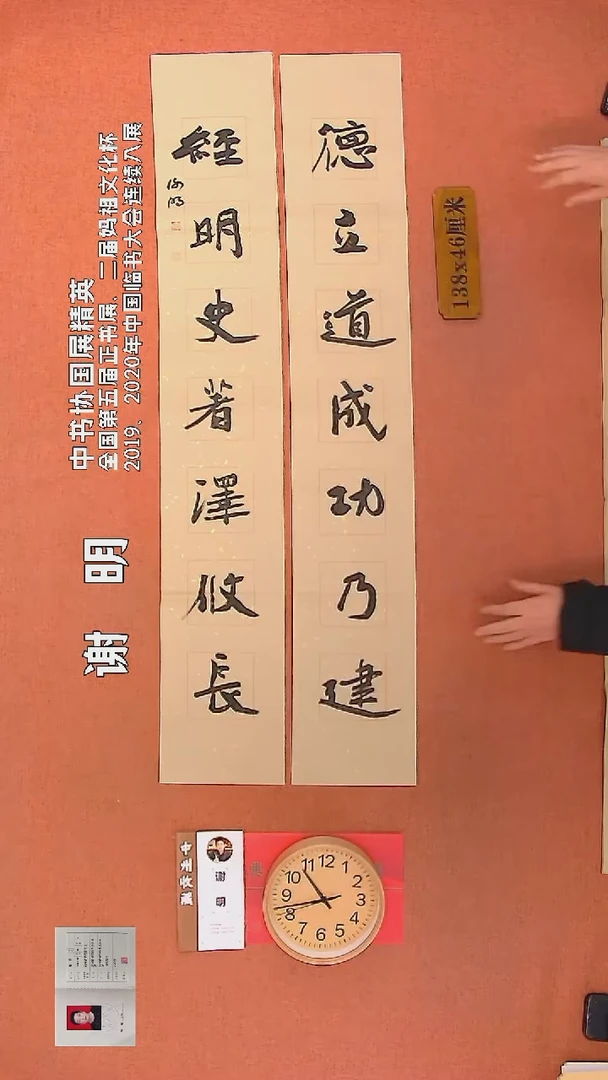 德立道成功乃建
經明史著澤攸長
謝明
138x46厘米
中书协国展精英
全国第五届正书展、二届妈祖文化杯
2019、2020年中国临书大会连续入展
谢 明
12
1
2
3
4
5
6
7
8
9
10
11